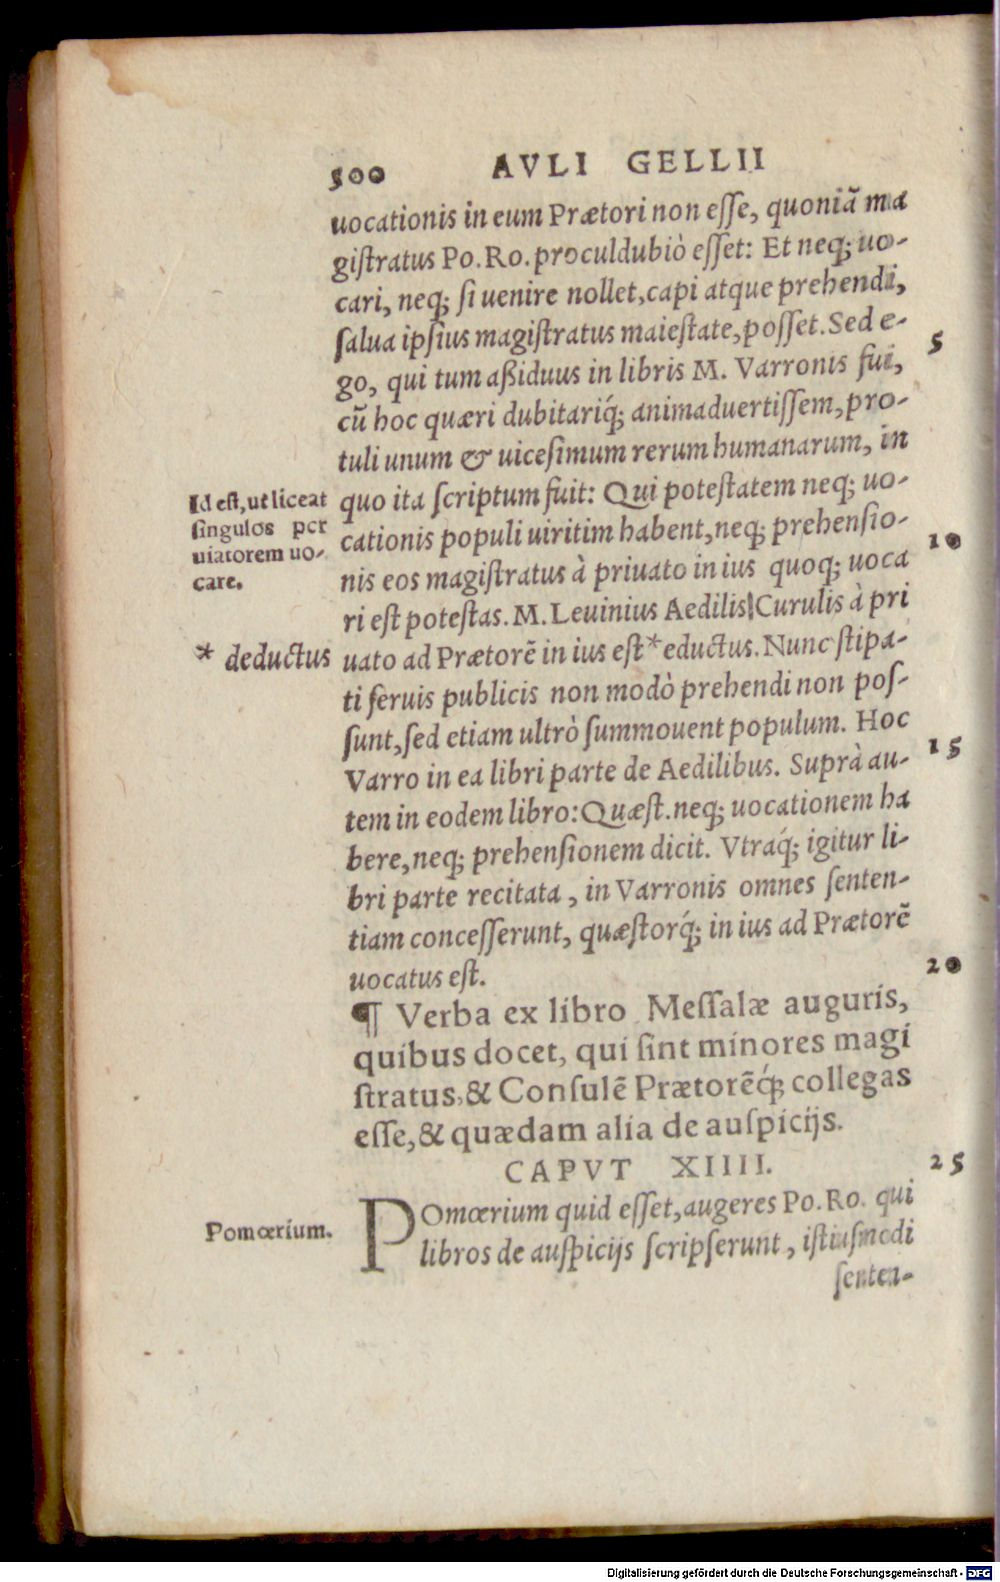 500 AVLI GELLII
uocationis in eum Prætori non esse, quoniã ma
gistratus Po. Ro. proculdubiò esset: Et neq; uo-
cari, neq; si uenire nollet, capi atque prehendi,
salua ipsius magistratus maiestate, posset. Sed e-
5
go, qui tum aßiduus in libris M. Varronis fui,
cũ hoc quæri dubitariq́; animaduertissem, pro-
tuli unum & uicesimum rerum humanarum, in
quo ita scriptum fuit: Qui potestatem neq; uo-
Id est, ut liceat
singulos per
uiatorem uo-
care.
cationis populi uiritim habent, neq; prehensio-
10
nis eos magistratus à priuato in ius quoq; uoca
ri est potestas. M. Leuinius Aedilis Curulis à pri
* deductus
uato ad Prætorẽ in ius est * eductus. Nunc stipa-
ti seruis publicis non modò prehendi non pos-
sunt, sed etiam ultrò summouent populum. Hoc
15
Varro in ea libri parte de Aedilibus. Suprà au-
tem in eodem libro: Quæst. neq; uocationem ha
bere, neq; prehensionem dicit. Vtraq́; igitur li-
bri parte recitata, in Varronis omnes senten-
tiam concesserunt, quæstorq́; in ius ad Prætorẽ
20
uocatus est.
¶ Verba ex libro Messalæ auguris,
quibus docet, qui sint minores magi
stratus, & Consulẽ Prætorẽq́; collegas
esse, & quædam alia de auspicijs.
25
CAPVT XIIII.
Pomœrium.
POmœrium quid esset, augeres Po. Ro. qui
libros de auspicijs scripserunt, istiusmodi
senten-
Digitalisierung gefördert durch die Deutsche Forschungsgemeinschaft - DFG